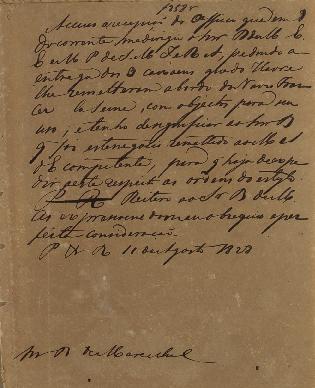 Accuso a recepção do Officio que em 9
do corrente me dirigio o Snr B de M. E.
E e M P de S. M. I. e R. A., pedindo a
entrega dos 3 caixoens que do Havre
lhe remetterão a bordo do Navio Fran
cez la Seine, com objectos para seu
uso, e tenho de significar ao Snr B
q foi este negocio remettido ao M d
E competente, para q haja de expe
dir a este respeito as ordens do estylo.
Reitero ao Sr B de M.
as expressoens da minha
feita consideração.
P do R 11 de Agosto 1823
Snr B de Mareschal